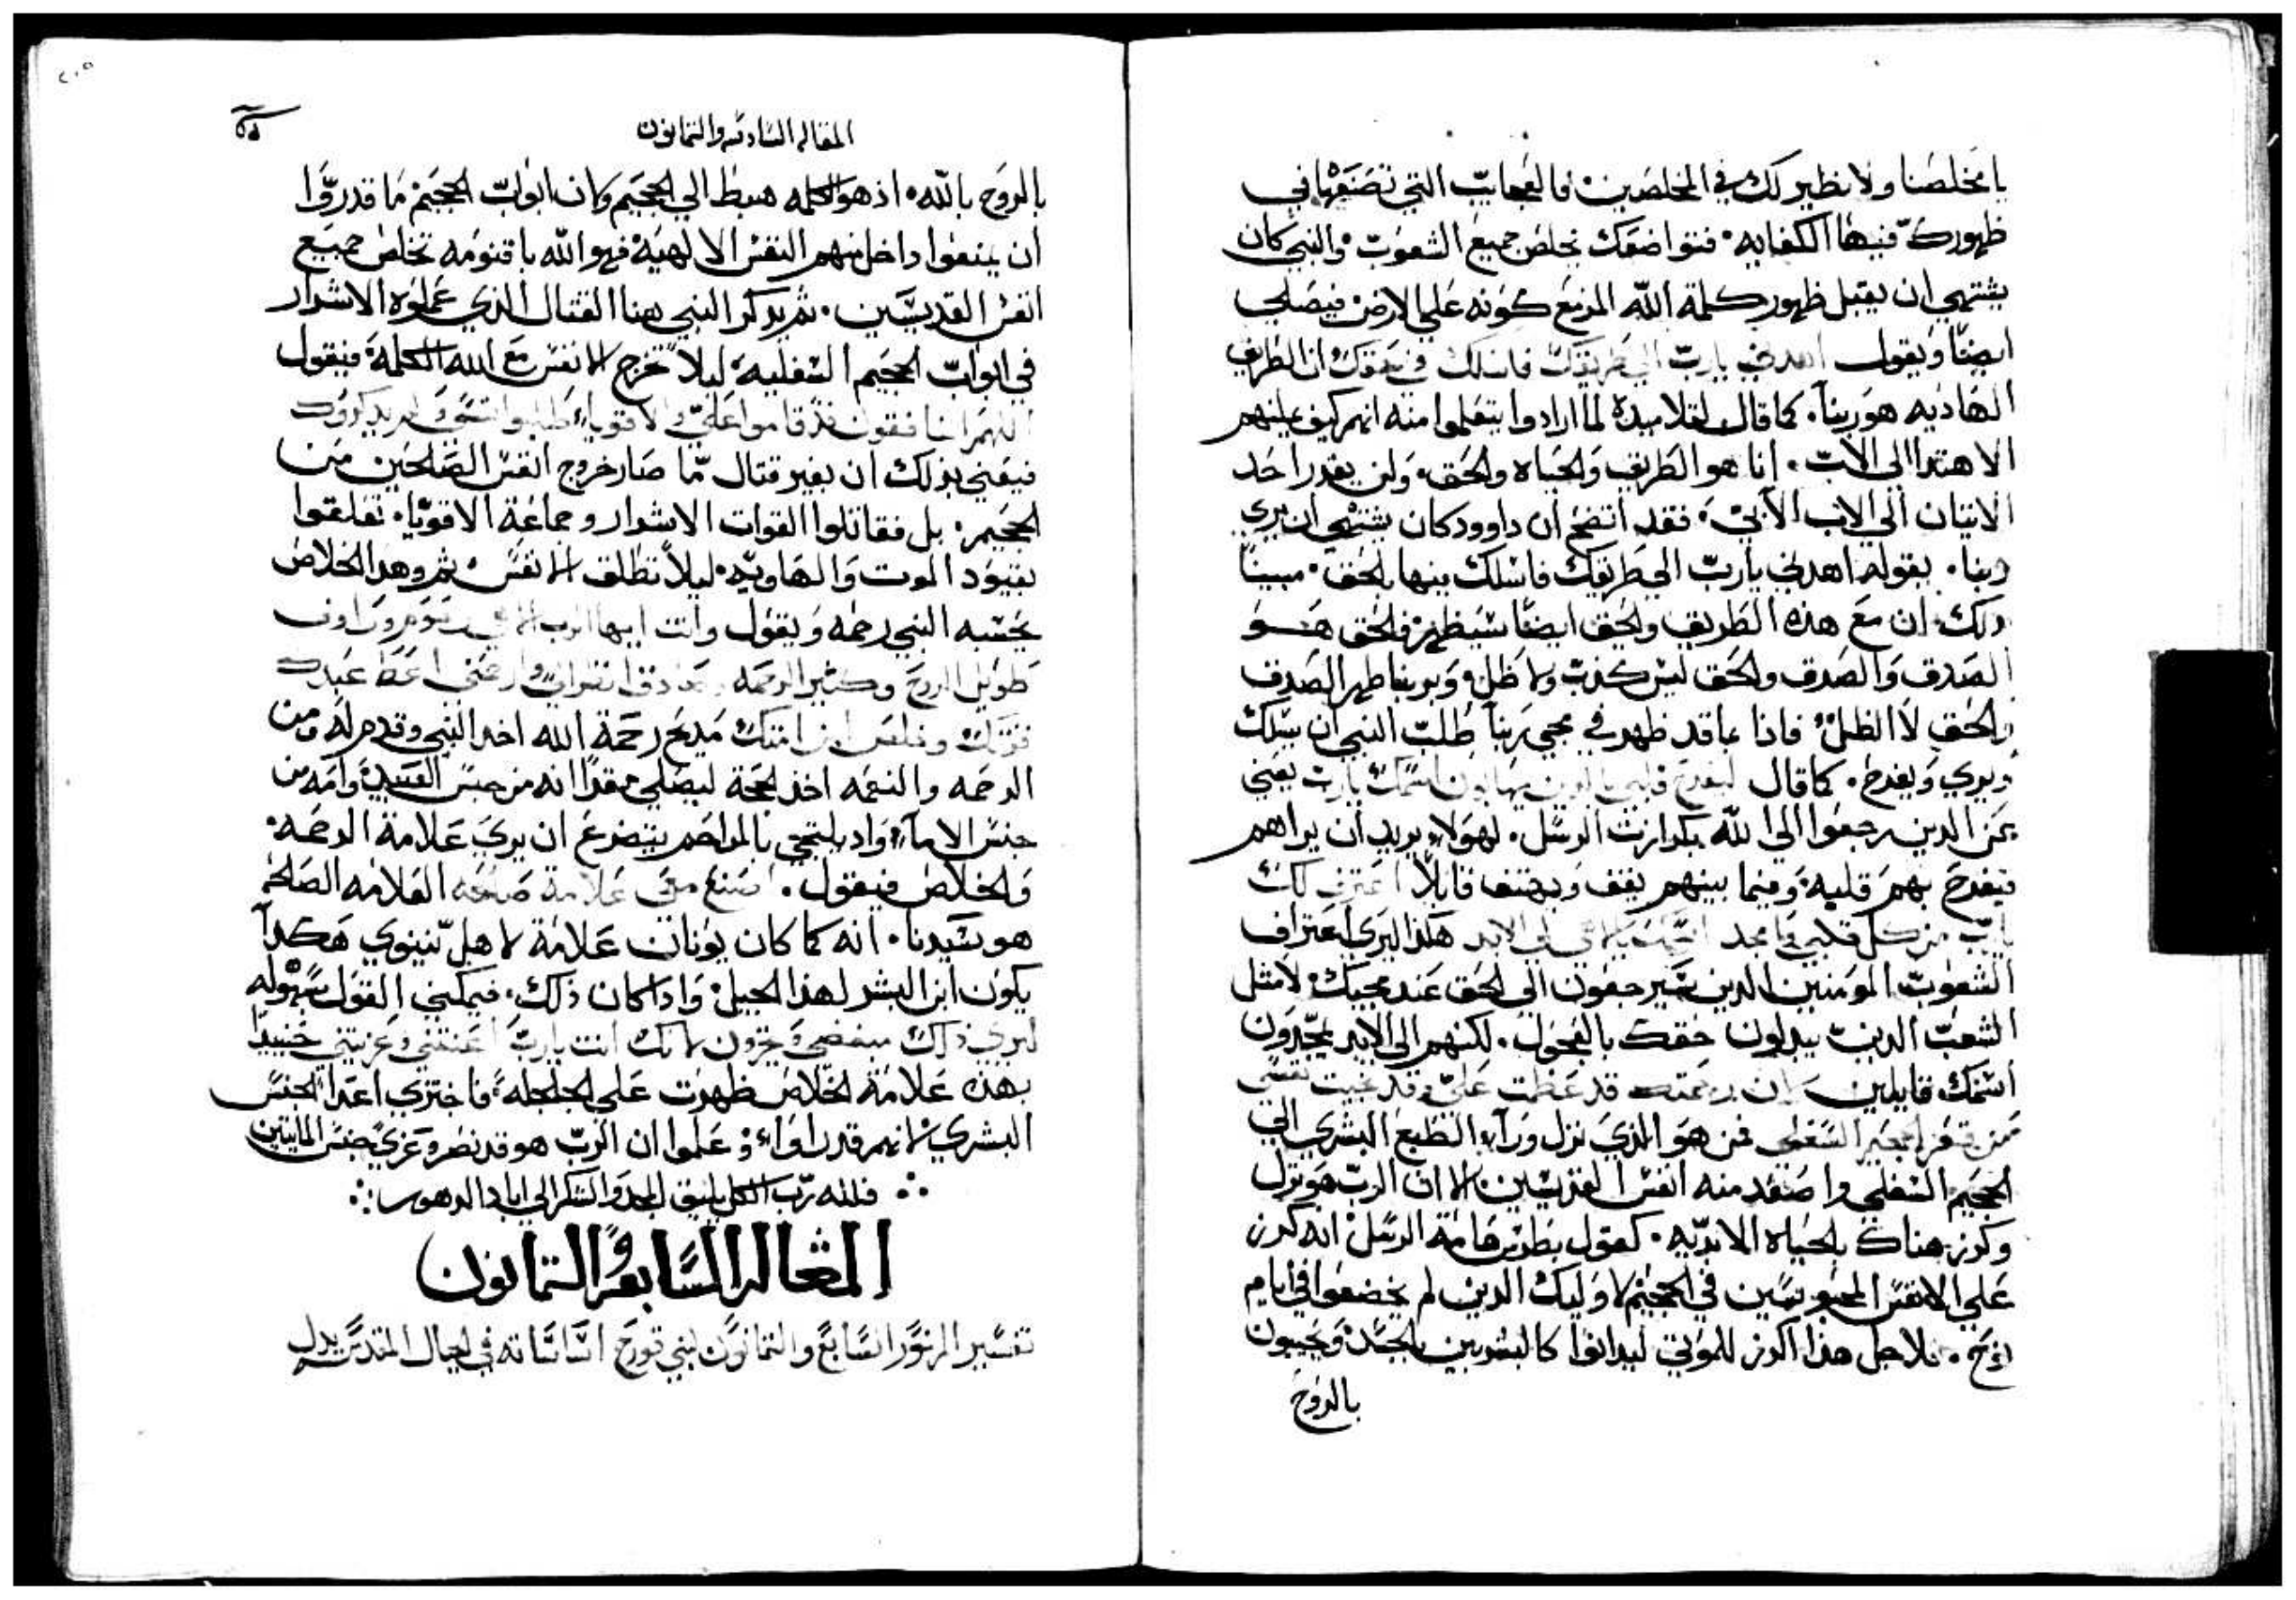 يا مخلصنا ولا نظير لك في المخلصين فالعجايب التي تصنعها في
ظهورك فيها الكفايه. فتواضعك تخلص جميع الشعوب والنبي كان
يشتهي ان يقبل ظهور كلمة الله المزمع كونه علي الارض فيصلي
ايضا ويقول اهدني يارب الي طريقك فاسلك في حقك ان الطريق
الهاديه هو ربنا. كما قال لتلاميده لما ارادوا يتعلموا منه انهم كيف يمكنهم
الاهتدا الي الاب. انا هو الطريق والحياه والحق. ولن يقدر احد
الاتيان الي الاب الا بي. فقد اتضح ان داوود كان يشتهي ان يري
ربنا. بقوله اهدني يارب الي طريقك فاسلك بينها بالحق. مبينا
دلك ان مع هذه الطريق والحق ايضا سيظهر فالحق هو
الصدق والصدق والحق ليس كذب ولا ظل وبربنا ظهر الصدق
والحق لا الظل فاذا ما قد ظهر في مجي ربنا طلب النبي ان يسلك
ويري ويفرح. كما قال ليفرح قلبي بالذين يهابون اسمك يارب يعني
عن الدين رجعوا الي الله بكرازت الرسل. لهولاء يريد ان يراهم
فيفرح بهم قلبه وفيما بينهم يقف ويهتف قايلا اعترف لك
يارب من كل قلبي وامجد اسمك الي الابد هكذا ليري اعتراف
الشعوب المومنين الدين سيرجعون الي الحق عند مجيك لا مثل
الشعب الدين يبدلون حقك بالعجل. لكنهم الي الابد يمجدون
اسمك قايلين لان رحمتك قد عظمت علي وقد نجيت نفسي
من قعر الجحيم السفلي فمن هو الذي نزل وراء الطبع البشري الي
الجحيم السفلي واصعد منه انفس القديسين الا ان الرب هو نزل
وكرز هناك بالحياه الابديه. كقول بطرس هامة الرسل انه كرز
علي الانفس المحبوسين في الجحيم لاوليك الدين لم يخضعوا في ايام
نوح. فلاجل هذا اكرز للموتي ليدانوا كالبشريين بالجسد ويحيون
بالروح
المقاله السادسه والتمانون
بالروح بالله. اذ هو الكلمه هبط الي الجحيم وكان ابواب الجحيم ما قدروا
ان يمنعوا داخل منهم النفس الالهيه فهو الله باقنومه تخلص جميع
انفس القديسين. ثم يدكر النبي هنا القتال الذي عملوه الاشرار
في ابواب الجحيم السفليه ليلا تخرج الانفس مع الله الكلمة فيقول
اللهم ان المنافقون قد قاموا علي والاقويا طلبوا نفسي ولم يدكروك
فيعني بذلك ان بغير قتال ما صار خروج انفس الصالحين من
الجحيم. بل فقاتلوا القوات الاشرار وجماعة الاقويا. تعلقوا
بقيود الموت والهاويه. ليلا تطلق الانفس ثم وهدا الخلاص
يحسبه النبي رحمه ويقول وانت ايها الرب الاهي رحوم وراوف
طويل الروح وكثير الرحمه وصادق انظر الي وارحمني اعط عبدك
قوتك وخلص ابن امتك مديح رحمة الله اخد النبي وقدم له ومن
الرحمه والنعمه اخذ الحجة ليصلي معقدا انه من جنس العبيد وامه من
جنس الاماء واد يلتجي بالمراحم يتضرع ان يري علامة الرحمه.
والخلاص فيقول. اصنع معي علامة صالحه العلامه الصالحه
هو سيدنا. انه كما كان يونان علامة لاهل نينوي هكدا
يكون ابن البشر لهذا الجيل وادا كان ذلك. فيمكني القول بسهوله
ليري ذلك مبغضي ويخزون لانك انت يارب اعنتني وعزيتني حينيد
بهذه علامة الخلاص ظهرت علي الجلجله فاختزي اعدا الجنس
البشري لانهم قد راوا وعلموا ان الرب هو قد نصر وعزي جنس المايتين
فلله رب الكل يليق المجد والشكر الي اباد الدهور
المقاله السابعه والتمانون
تفسير المزمور السابع والتمانون لبني قورح اساساته في الجبال المقدسه يدل